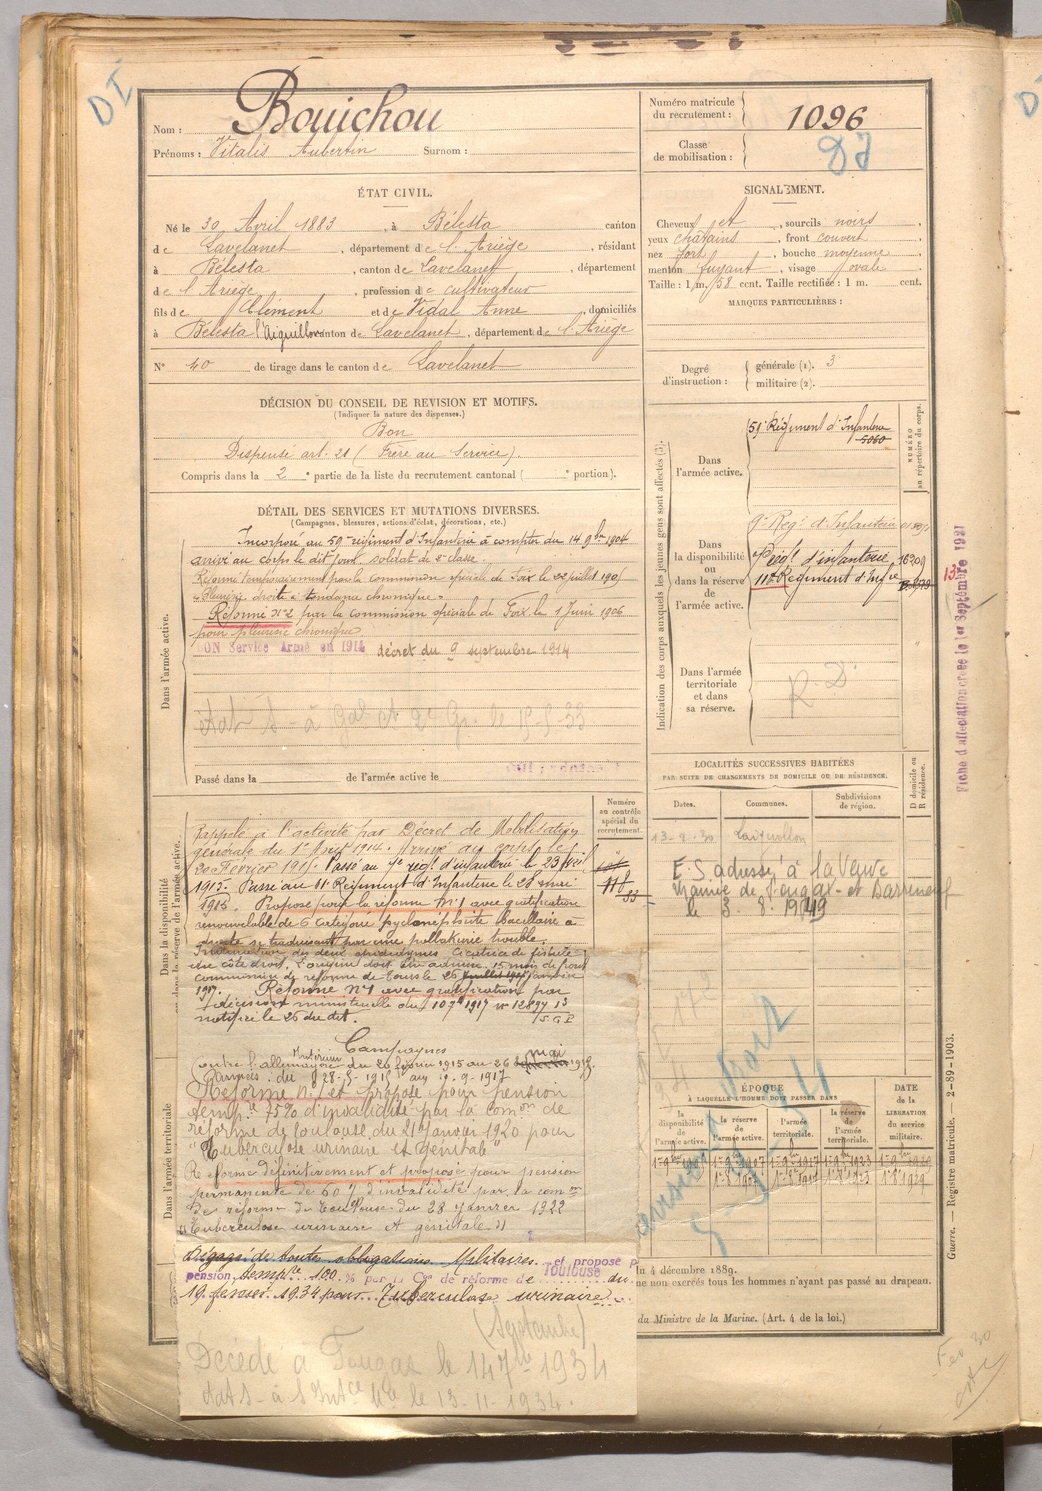 DI
Nom : Bouichou
Prénoms : Vitalis Aubertin Surnom :
Numéro matricule du recrutement : 1096
Classe de mobilisation :
ÉTAT CIVIL.
Né le 30 Avril 1883, à Bélesta canton
de Lavelanet, département de l'Ariège, résidant
à Bélesta, canton de Lavelanet, département
de l'Ariège, profession de cultivateur
fils de Clément et de Vidal Anne, domiciliés
à Bélesta l'Aiguillon canton de Lavelanet, département de l'Ariège
N° 40 de tirage dans le canton de Lavelanet
SIGNALEMENT.
Cheveux jet, sourcils noirs,
yeux châtains, front couvert
nez fort, bouche moyenne
menton fuyant, visage ovale
Taille : 1 m. 58 cent. Taille rectifiée : 1 m. cent.
MARQUES PARTICULIÈRES :
Degré d'instruction : générale (1). 3
militaire (2).
DÉCISION DU CONSEIL DE REVISION ET MOTIFS.
(Indiquer la nature des dispenses.)
Bon
Dispensé art. 21 (Frère au Service).
Compris dans la 2e partie de la liste du recrutement cantonal ( e portion).
DÉTAIL DES SERVICES ET MUTATIONS DIVERSES.
(Campagnes, blessures, actions d'éclat, décorations, etc.)
Dans l'armée active.
Incorporé au 59e régiment d'Infanterie à compter du 14 9bre 1904
arrivé au corps le dit jour, soldat de 2e classe.
Réformé temporairement par la commission spéciale de Foix le 22 juillet 1905
"Pleurésie droite à tendance chronique"
Réformé n°2 par la commission spéciale de Foix le 1 Juin 1906
pour pleurésie chronique
BON Service Armé en 1914 décret du 9 septembre 1914
Passé dans la de l'armée active le
Indication des corps auxquels les jeunes gens sont affectés (3).
NUMÉRO au répertoire du corps.
Dans l'armée active.
59 Régiment d'Infanterie
5060
Dans la disponibilité ou dans la réserve de l'armée active.
9e Regt d'Infanterie
7e régt d'infanterie
11e Régiment d'Infie
Dans l'armée territoriale et dans sa réserve.
R.D
Fiche d'affectation créée le 1er Septembre 1921
LOCALITÉS SUCCESSIVES HABITÉES
PAR SUITE DE CHANGEMENTS DE DOMICILE OU DE RÉSIDENCE.
D domicile ou R résidence.
Dates. Communes. Subdivisions de région.
E.S. adressé à la Veuve
le 3. 8. 1949
Numéro au contrôle spécial du recrutement.
Dans la disponibilité ou dans la réserve de l'armée active.
Rappelé à l'activité par Décret de Mobilisation
générale du 1er Août 1914. Arrivé au corps le
20 Février 1915. Passé au 7e régt d'infanterie le 23 fév.
1915. Passé au 11e Régiment d'Infanterie le 28 mai
1915. Proposé pour la réforme N°1 avec gratification
renouvelable de 6e catégorie pyélonéphrite bacillaire à
droite se traduisant par une pollakiurie trouble.
Commission de réforme de Tours le 26 juillet 1917 janvier
1917. Réformé N°1 avec gratification par
décision ministérielle du 10 7bre 1917 n° 12897 13
notifié le 26 du dit.
Campagnes
Contre l'allemagne Intérieur du 20 février 1915 au 26 mai 1915.
Armées : du 28-5-1915 au
Dans l'armée territoriale
Réformé n°1 et proposé pour pension
temp. 75% d'invalidité par la comon de
réforme de Toulouse du 21 janvier 1920 pour
"Tuberculose urinaire et génitale"
Réformé définitivement et proposé pour pension
permanente de 60% d'invalidité par la comon
de réforme de Toulouse du 28 Janvier 1922
"Tuberculose urinaire et génitale"
Dégagé de toutes obligations Militaires. et proposé p
pension temp. 100 % par la Con de réforme de Toulouse du
19 février 1934 pour Tuberculose urinaire
(Septembre)
Décédé à Fougax le 14 7bre 1934
le 13-11-1934.
ÉPOQUE
À LAQUELLE L'HOMME DOIT PASSER DANS
la disponibilité de l'armée active. la réserve de l'armée active. l'armée territoriale. la réserve de l'armée territoriale.
DATE de la LIBÉRATION du service militaire.
in 4 décembre 1889.
ne non exercés tous les hommes n'ayant pas passé au drapeau.
du Ministre de la Marine. (Art. 4 de la loi.)
Guerre. — Registre matricule. — 2-89-1903.